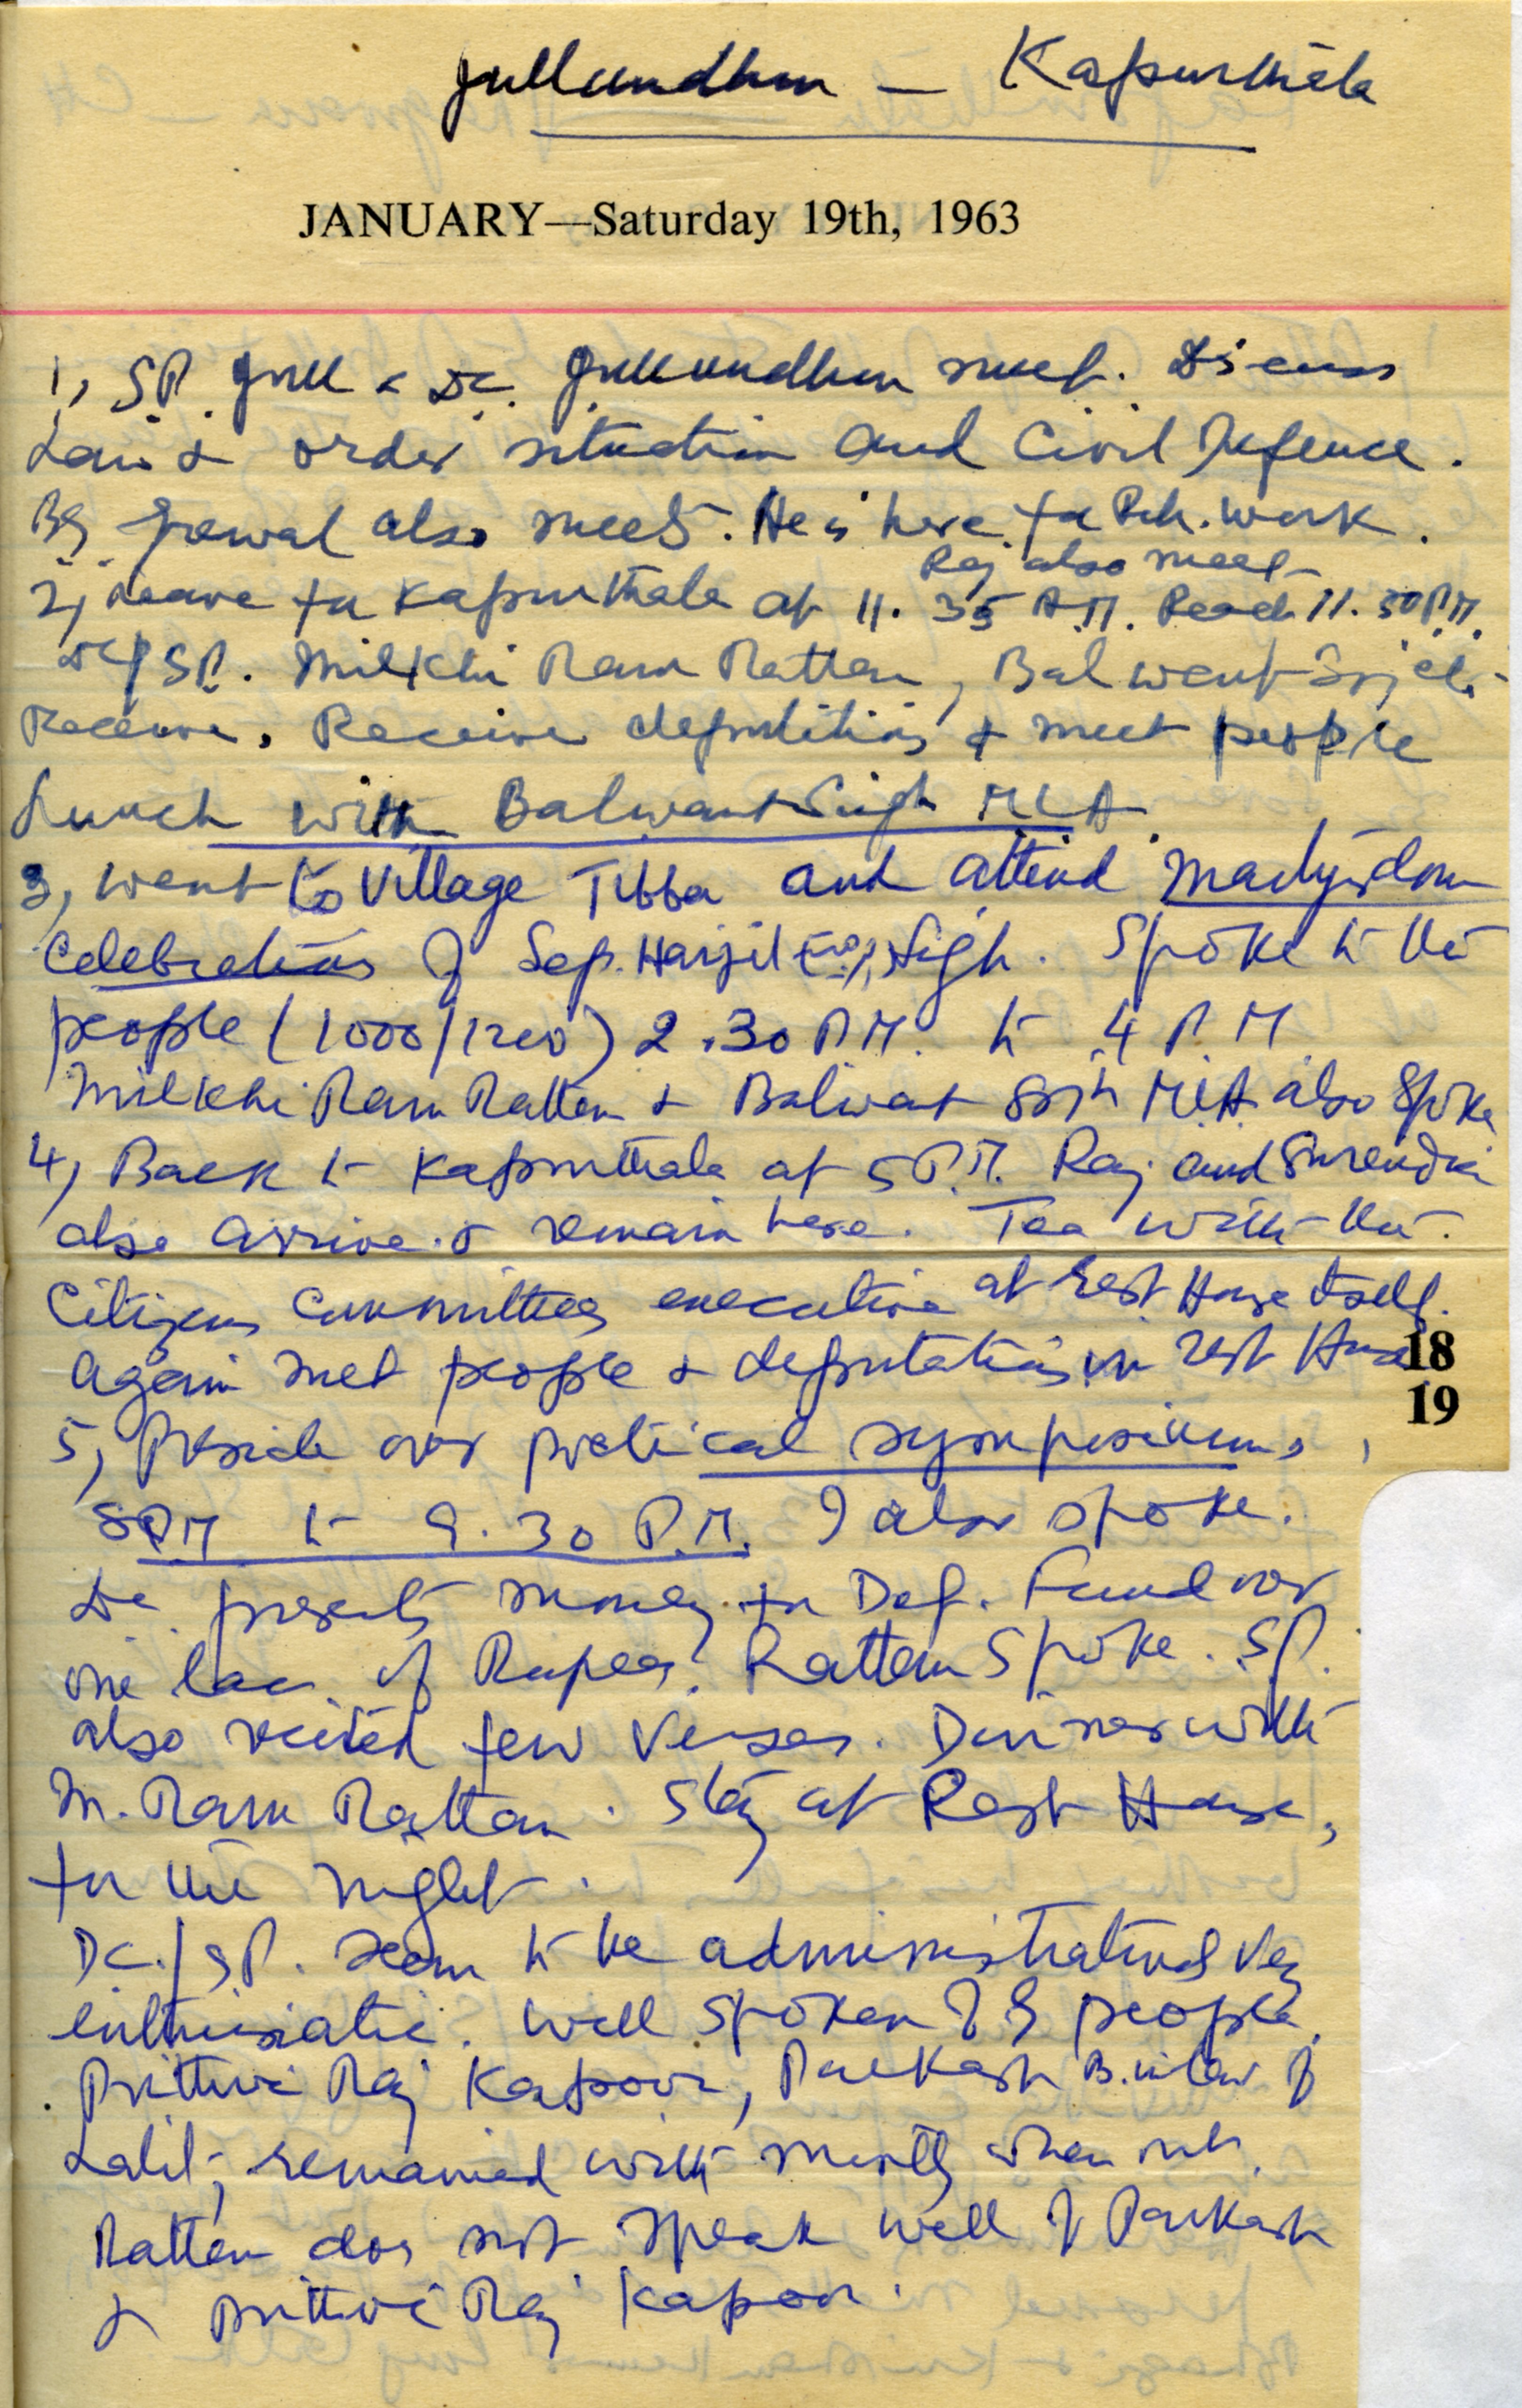 Jullundhur — Kapurthala
JANUARY—Saturday 19th, 1963
1, S.P. Jull & D.C. Jullundhur meet. Discuss
Law & order situation and Civil Defence.
Bg Grewal also meets. He is here for Reh. work.
Raj also meet
2, Leave for Kapurthala at 11.35 A.M. Reach 11.50 P.M.
DC/SP. Milkhi Ram Rattan, Balwant
Receive. Receive deputations & meet people
Lunch with Balwant Singh MLA.
3, Went to Village Tibba and attend Martyrdom
Celebrations of Sep. Harjit Singh. Spoke to the
people (1000/1200) 2.30 P.M. to 4 P.M
Milkhi Ram Rattan & Balwant Singh MLA also Spoke
4, Back to Kapurthala at 5 P.M. Raj and Surendra
also arrive & remain here. Tea with the
Citizens Committees executive at Rest House itself.
Again met people & deputations in rest House
18
19
5, Preside over poetical symposium,
8 PM to 9.30 P.M. I also spoke.
DC presents money for Def. Fund over
one lac of Rupees. Rattan Spoke. SP.
also recited few Verses. Dinner with
M. Ram Rattan. Stay at Rest House,
for the night.
DC./SP. seem to be administrative & very
enthusiatic. Well spoken of by people.
Prithvi Raj Kapoor, Parkash B. in law of
Lalit, remained with mostly when out.
Rattan does not speak well of Parkash
& Prithvi Raj Kapoor.